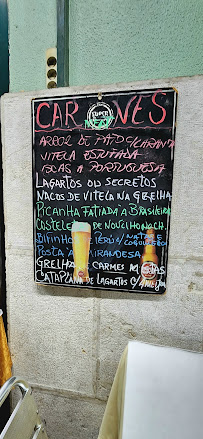 CARNES
SUPER BOCK
ARROZ DE PATO C/LARANJA
VITELA ESTUFADA
ISCAS A PORTUGUESA
LAGARTOS OU SECRETOS
NACOS DE VITELA NA GRELHA
PICANHA FATIADA A BRASILEIRA
COSTELETA DE NOVILHO NACH.
BIFINHOS DE PERÚ C/ NATAS E COGUMELOS
POSTA A MIRANDESA
GRELHADA DE CARNES MISTAS
CATAPLANA DE LAGARTOS C/